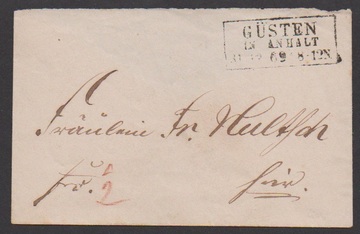 GÜSTEN
IN ANHALT
69 8-12N
Fräulein Fr. Hultsch
fr. 2 hier.